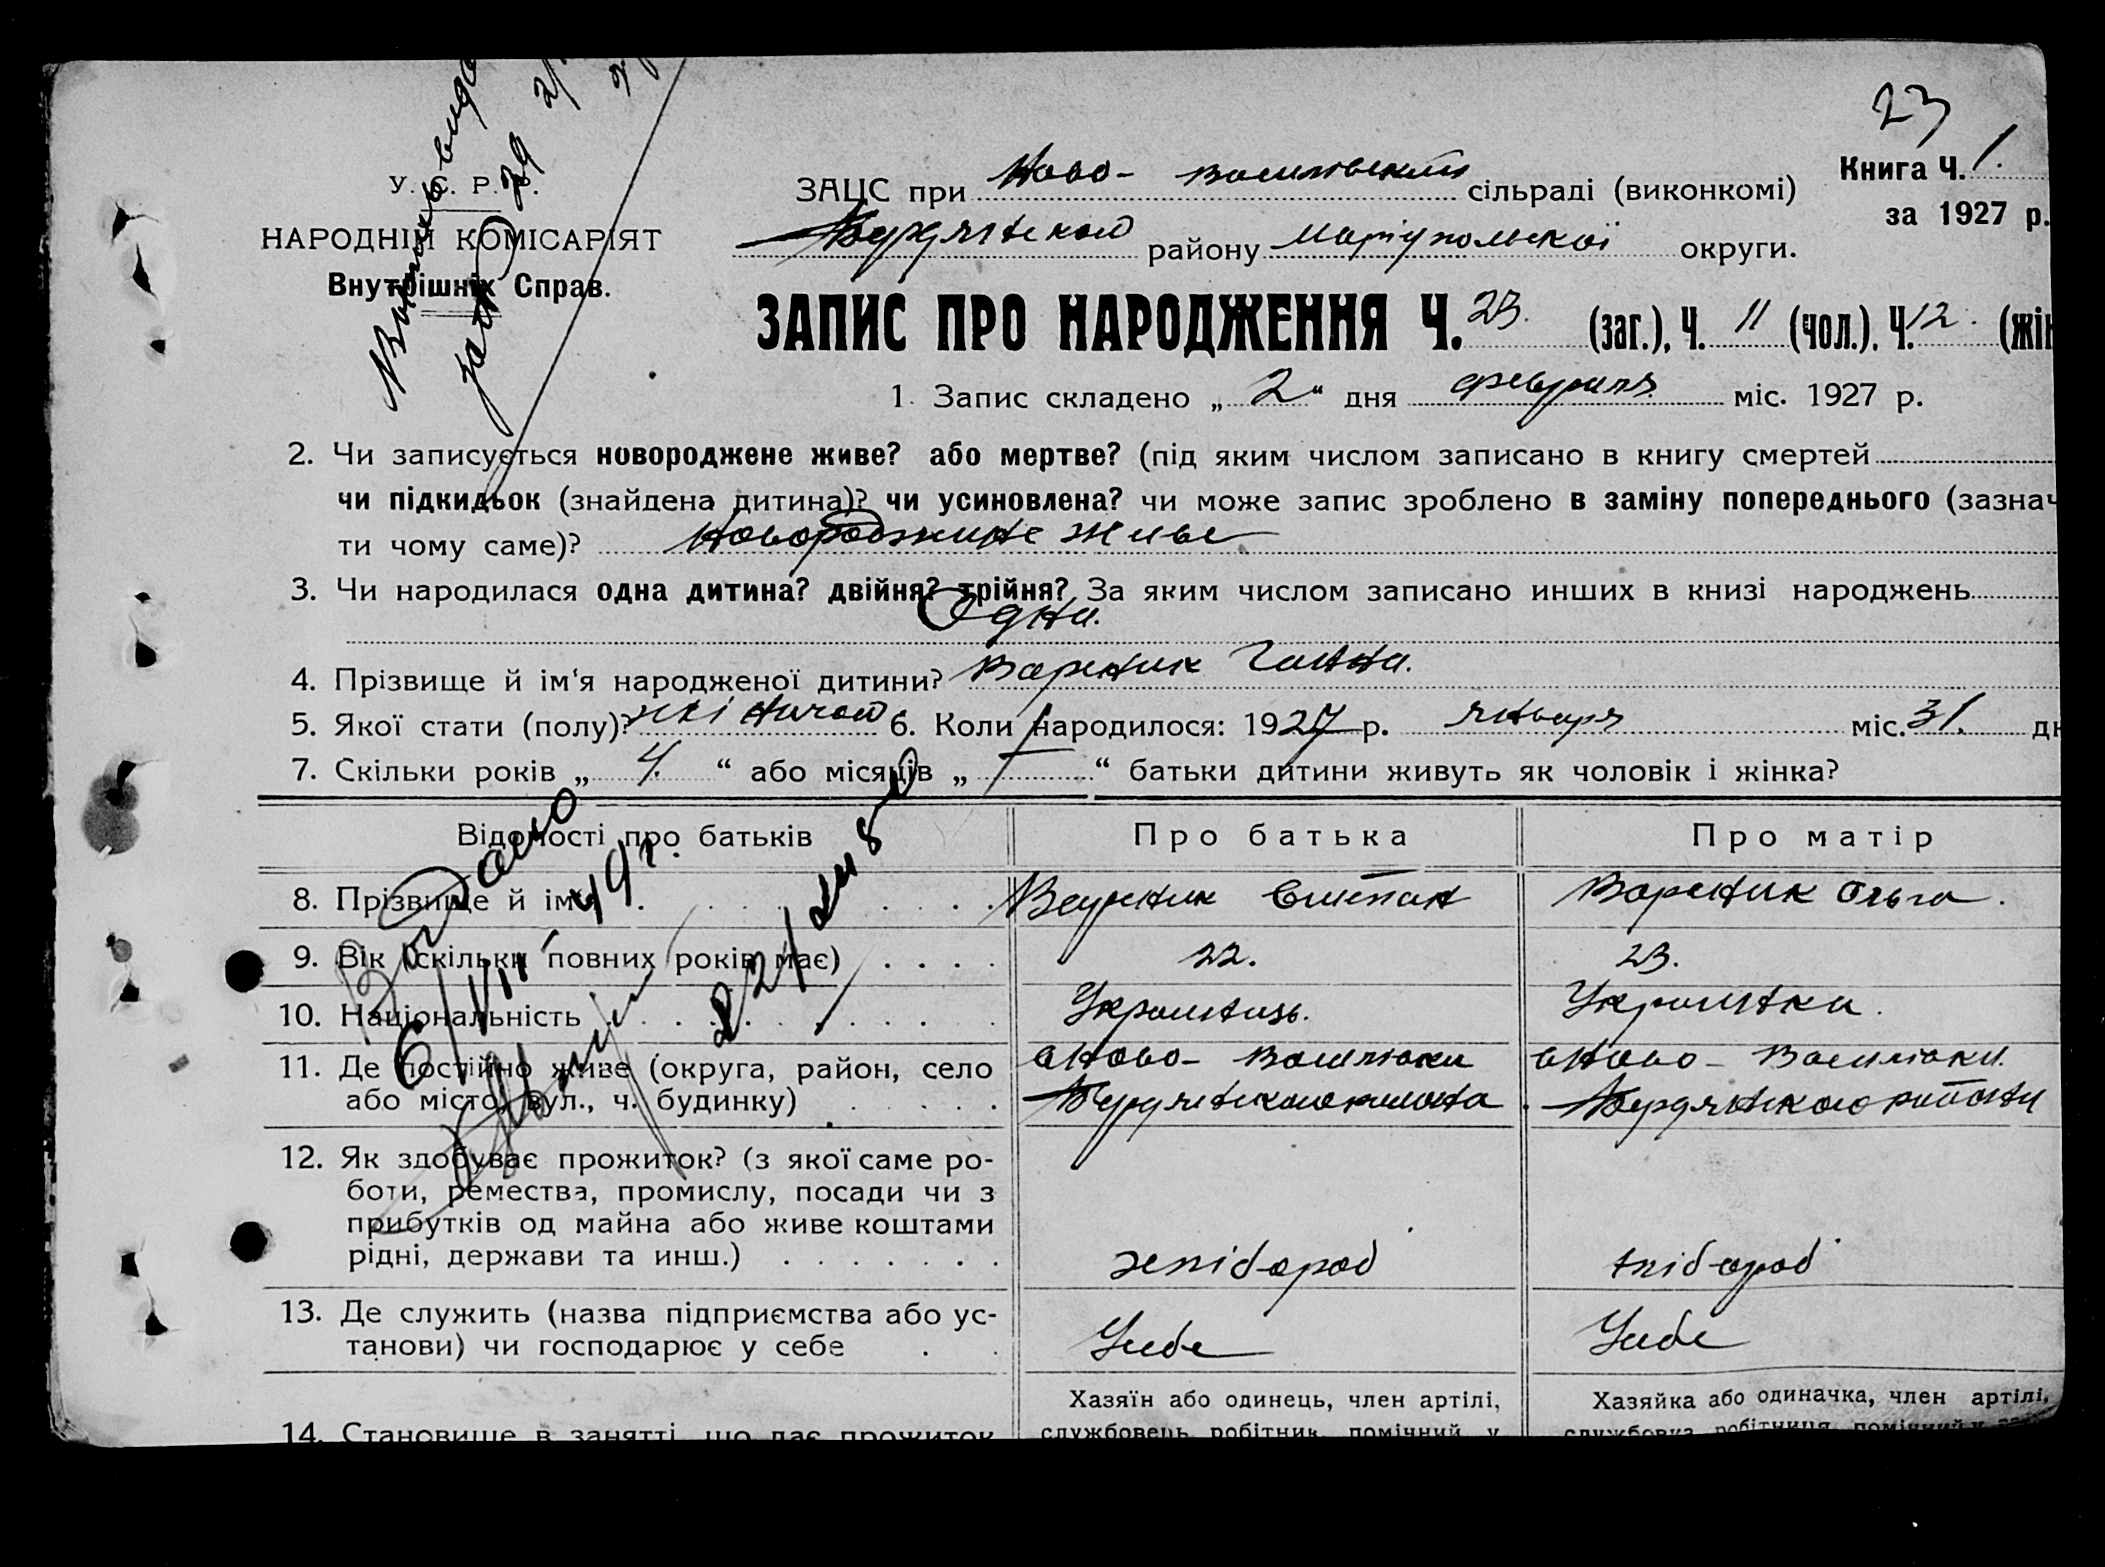 23
У. С. Р. Р.
НАРОДНІЙ КОМІСАРІЯТ
Внутрішніх Справ.
ЗАЦС при Ново- Василівській сільраді (виконкомі)
Бердянсково району Маріупольскої округи.
Книга Ч. 1.
за 1927 р.
ЗАПИС ПРО НАРОДЖЕННЯ Ч. 23. (заг.), Ч. 11 (чол.). Ч. 12. (жін
1. Запис складено „ 2 “ дня февраля міс. 1927 р.
2. Чи записується новороджене живе? або мертве? (під яким числом записано в книгу смертей
чи підкидьок (знайдена дитина)? чи усиновлена? чи може запис зроблено в заміну попереднього (зазнач
ти чому саме)? Новороджине живе
3. Чи народилася одна дитина? двійня? трійня? За яким числом записано инших в книзі народжень
Одна.
4. Прізвище й ім‘я народженої дитини? Вареник Ганна.
5. Якої стати (полу)? 6. Коли народилося: 1927 р. января міс. 31. дн
7. Скільки років „ 4. “ або місяців „ “ батьки дитини живуть як чоловік і жінка?
Відомості про батьків
Про батька
Про матір
8. Прізвище й ім‘я Вареник Степан Вареник Ольга.
9. Вік (скільки повних років має) 22. 23.
10. Національність Украинець. Украинка.
11. Де постійно живе (округа, район, село Ново- Василівки Ново- Василівки.
або місто, вул., ч. будинку) Бердянського района Бердянського району
12. Як здобуває прожиток? (з якої саме ро-
боти, ремества, промислу, посади чи з
прибутків од майна або живе коштами
рідні, держави та инш.) хлібороб хлібороб
13. Де служить (назва підприємства або ус-
танови) чи господарює у себе Усебе Усебе
Хазяїн або одинець, член артілі,
Хазяйка або одиначка, член артілі,
14. Становище в занятті, що дає прожиток
службовець, робітник, помічний у
службовка, робітниця, помічний у
Видано
6/VII 49 г.